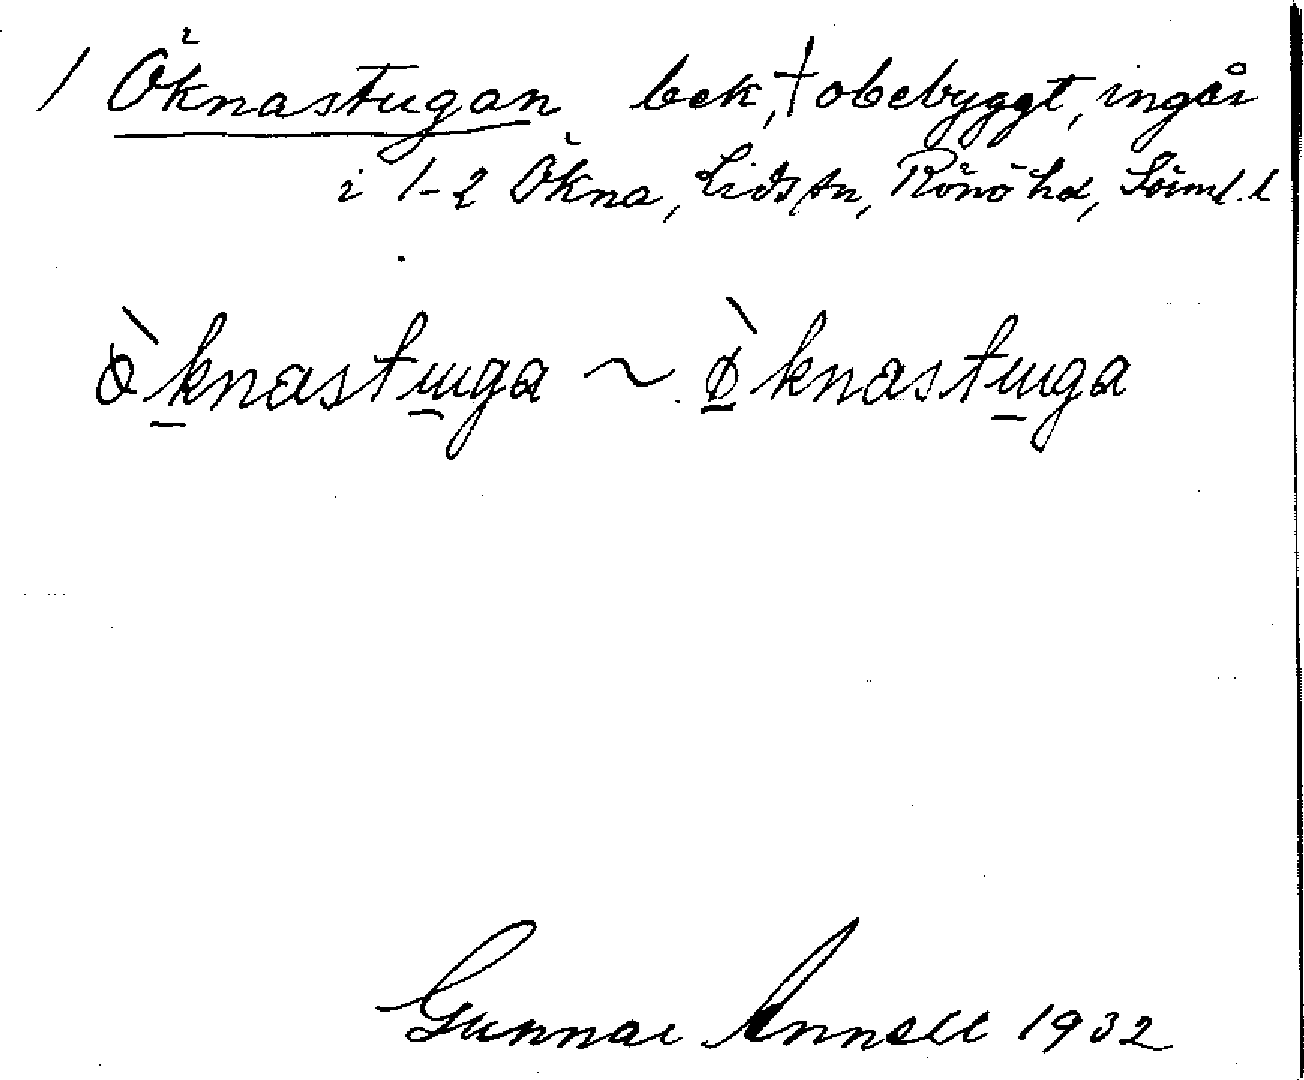 1 Öknastugan bek, † obebyggt, ingår
i 1-2 Ökna, Lids sn, Rönö hd, Söml. l
ö̀knastɯga ~ ø̀knastɯga
Gunnar Annell 1932